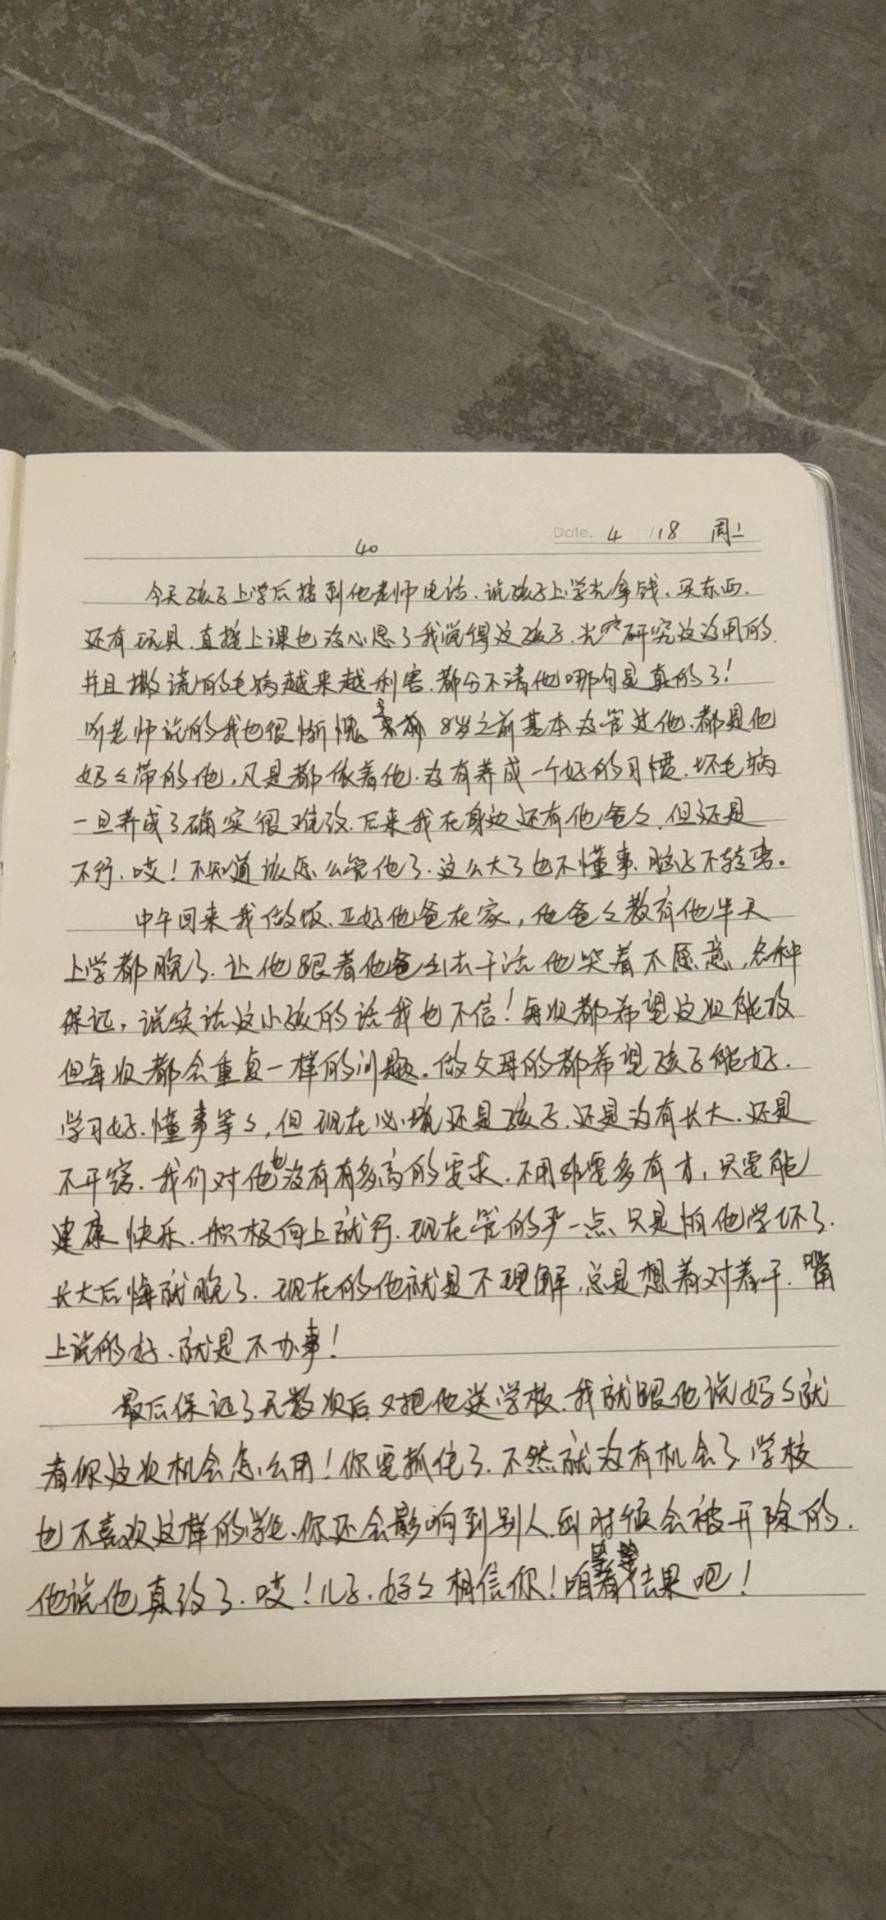 40
Date. 4 / 18 周二
今天孩子上学后接到他老师电话.说孩子上学光拿钱、买东西.
还有玩具.直接上课也没心思了我觉得这孩子.光研究这没用的.
并且撒谎的毛病越来越利害.都分不清他哪句是真的了!
听老师说的我也很惭愧 8岁之前基本没管过他.都是他
奶々带的他,凡是都依着他.没有养成一个好的习惯.坏毛病
一旦养成了确实很难改.后来我在身边还有他爸々.但还是
不行.哎!不知道该怎么管他了.这么大了也不懂事.脑子不转弯。
中午回来我做饭.正好他爸在家,他爸々教育他半天
上学都晚了.让他跟着他爸出去干活他哭着不愿意,各种
保证,说实话这小孩的话我也不信!每次都希望这次能改
但每次都会重复一样的问题.做父母的都希望孩子能好.
学习好.懂事等々,但现在心境还是孩子.还是没有长大.还是
不开窍.我们对他也没有有多高的要求.不用非要多有才,只要能
健康快乐.积极向上就行.现在管的严一点、只是怕他学坏了.
长大后悔就晚了.现在的他就是不理解,总是想着对着干.嘴
上说的好.就是不办事!
最后保证了无数次后又把他送学校.我就跟他说妈々就
看你这次机会怎么用!你要抓住了.不然就没有机会了学校
也不喜欢这样的学生.你还会影响到别人.到时候会被开除的.
他说他真改了.哎!儿子.妈々相信你!咱看结果吧!